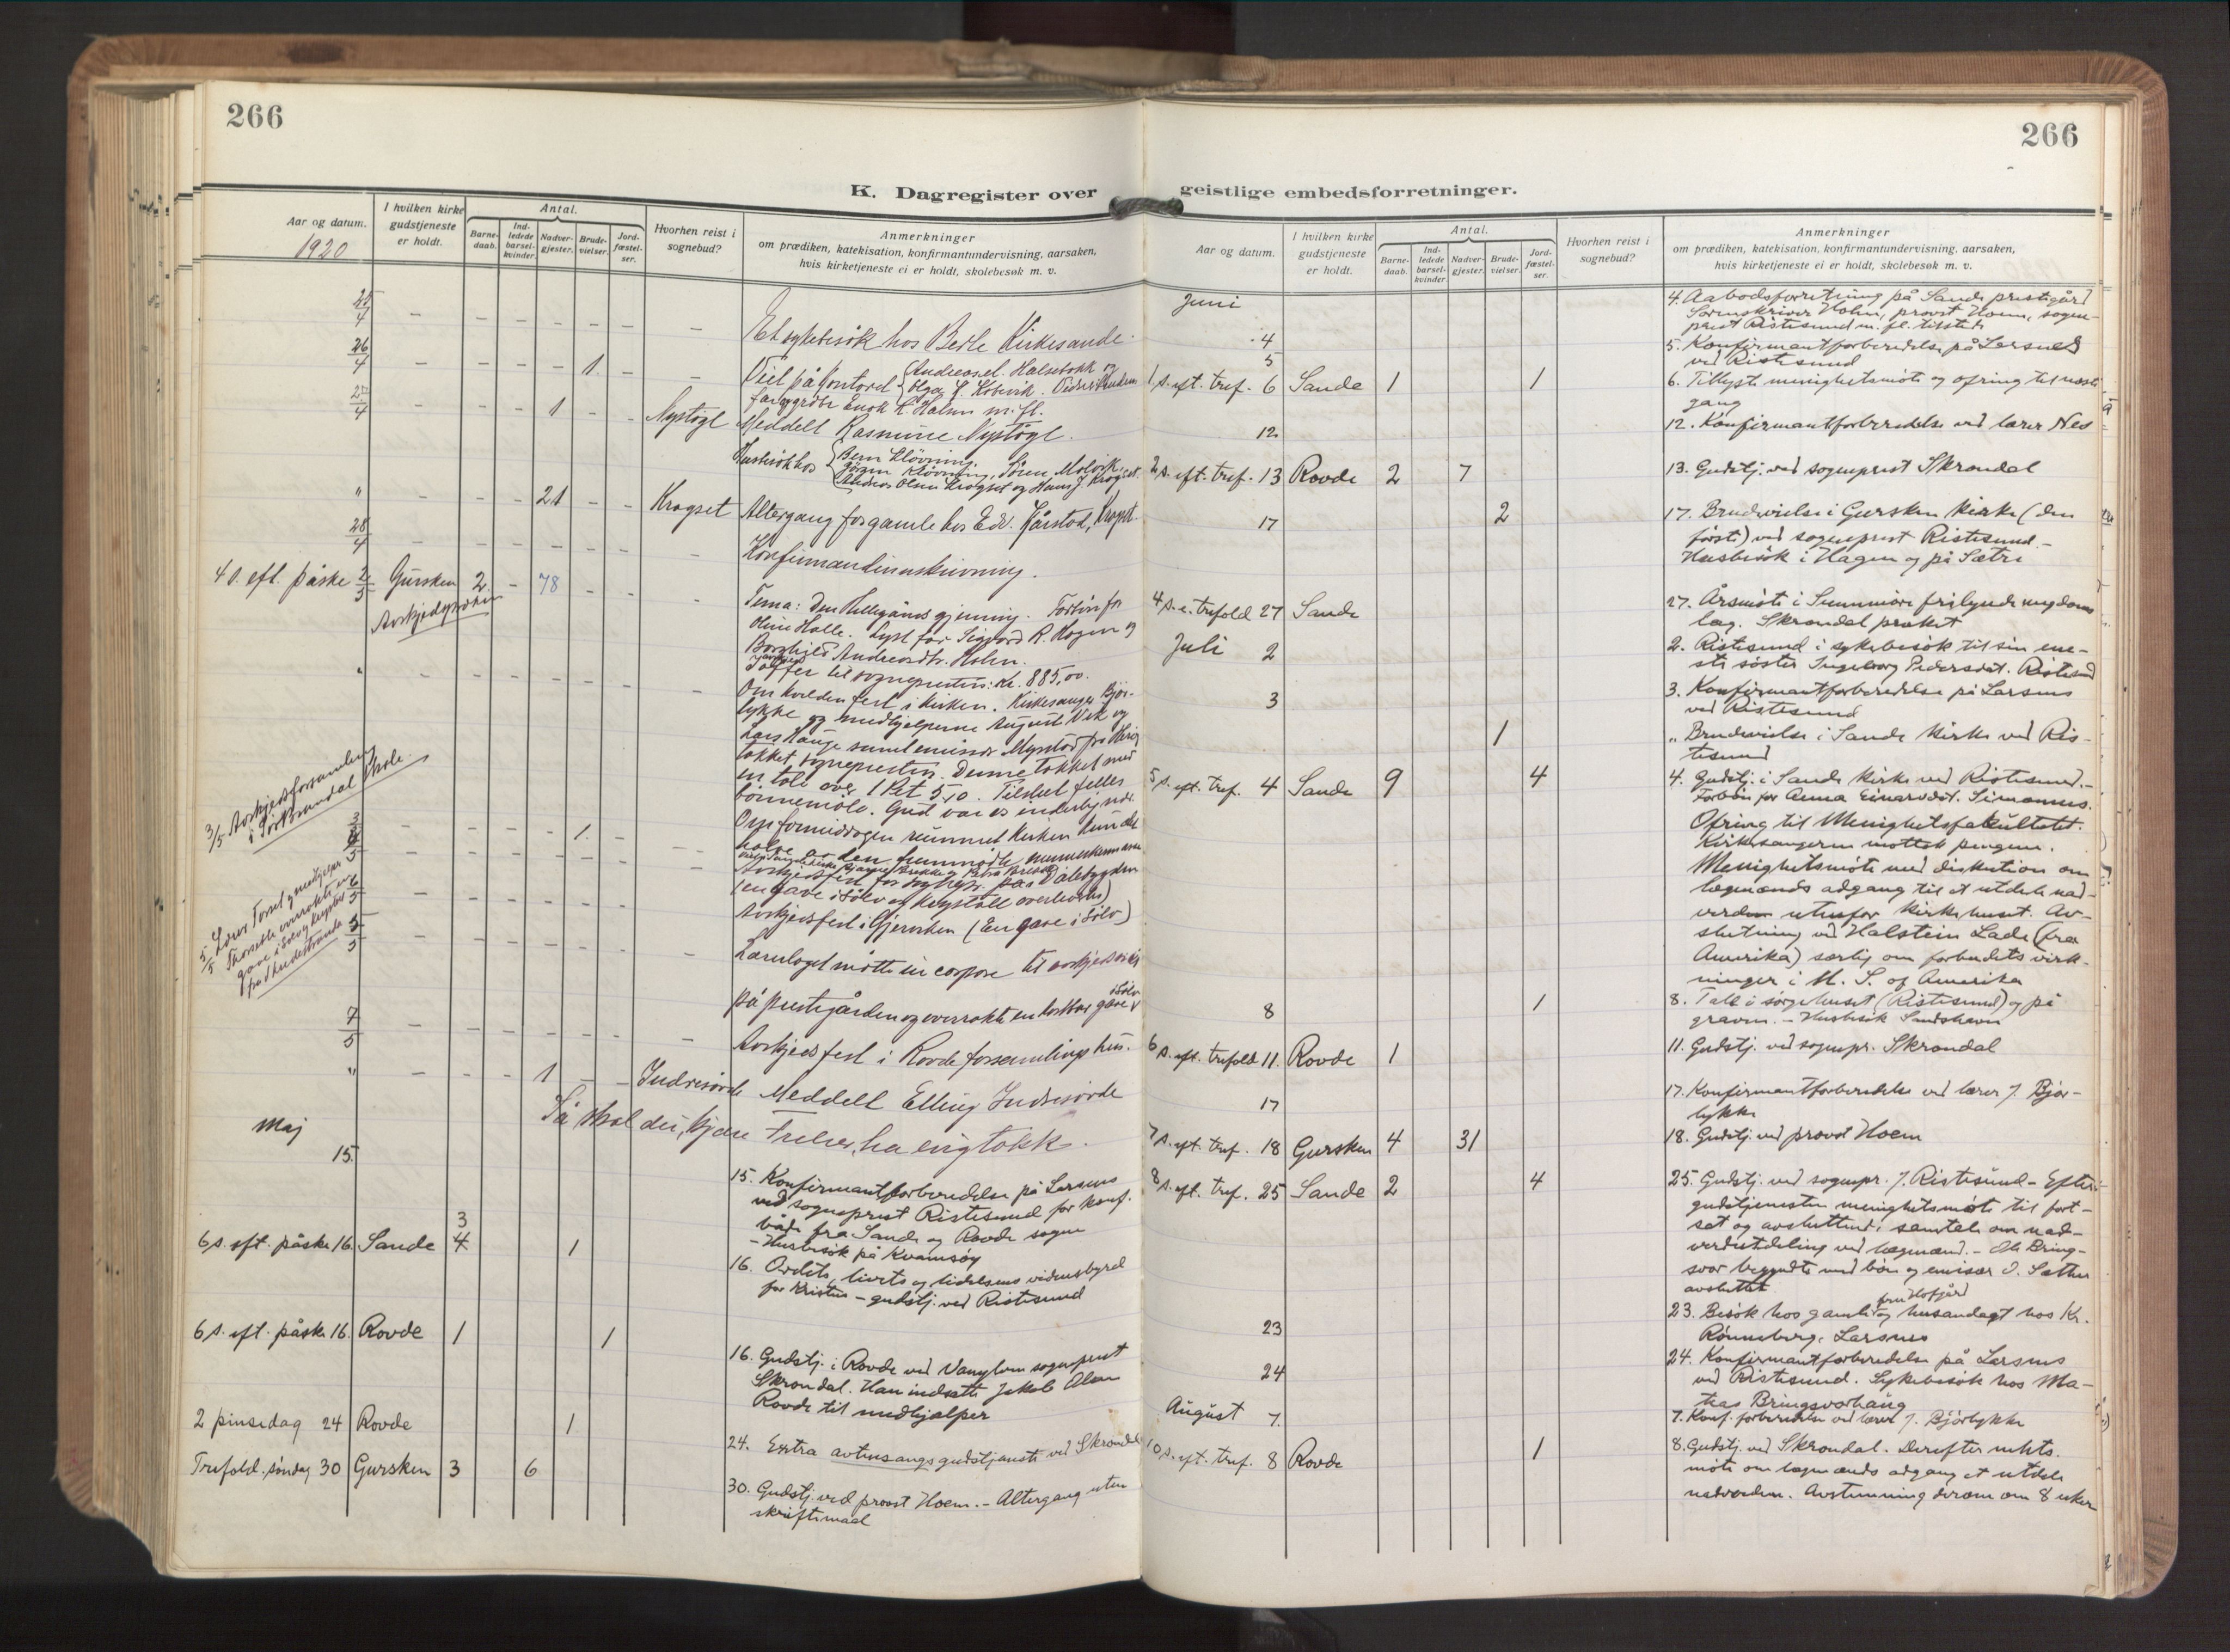 266
K. Dagregister over
Aar og datum.
1920
I hvilken kirke
gudstjeneste
er holdt.
Antal.
Barne-
daab.
Ind-
ledede
barsel-
kvinder.
Nadver-
gjester.
Brude-
vielser.
Jord-
fæstel-
ser.
Hvorhen reist i
sognebud?
Anmerkninger
om prædiken, katekisation, konfirmantundervisning, aarsaken,
hvis kirketjeneste ei er holdt, skolebesøk m. v.
25/4 – – – – – – – Et sykebesök hos Berte Kirkesande.
26/4 – – – – 1 – – Viet på kontoret Andreas el. Halsebakk og
Olga
27/4 – – – 1 – – Nystögl Meddelt Rasmine Nystögl.
Husbesök hos
" – – – 21 – – Krogset Altergang for gamle hos Edv. Kårstad, Krogset.
28/4 – – – – – – – Konfirmantinnskrivning.
4 s. eft. påske 2/5 Gursken 2 – 78 – – –
Avskjedspreken
Tema: Den Helligånds gjerning. Forbön for
Oline Halle. Lyst for Sigvard R. Hagen og
Borghild Andreasdtr. Holm.
offer til sognepresten: Kr. 885,00.
Om kvelden fest i kirken. Kirkesanger Bjør-
lykke og medhjelperne August Vik og
Lars Hauge samt emissær Myrstad fra
takket sognepresten. Denne takket med
en tale over 1 Pet 5,10. Tilslut felles
bönnemöte. Gud var os inderlig nær.
Om formiddagen rummet kirken kun det
halve av den fremmötte menneskemasse
3/5 Avskjedsforsamling
i Sørbrandal skole.
3/5 – – – – 1 – –
(en gave i sölv og krystall overleveres)
6/5 – Avskjedsfest i Gjersken (En gave i sölv)
5/5 – Lærerlaget mötte in corpore til avskjeds
på prestegården og overrakte en kostbar gave i sölv
7/5 – – – – – – – Avskjedsfest i Rovde forsamlingshus.
" – – – 1 – – Indresörde Meddelt Elling Indresörde
Så skal du, kjære Frelser, ha evig takk.
Maj
15.
15. Konfirmantforberedelse på Larsnes
ved sogneprest Ristesund for konf.
både fra Sande og Rovde sogne
– Husbesøk på Kvamsøy
6 s. eft. påske 16. Sande 3 4 1
16. Ordets, livets og lidelsens vidnesbyrd
for Kristus – gudstj. ved Ristesund
6 s. eft. påske 16. Rovde 1 1
16. Gudstj. i Rovde ved Vanylven sogneprest
Skrondal. Han indsatte Jakob Olsen
Rovde til medhjælper
2 pinsedag 24 Rovde 1
24. Extra avtensangsgudstjeneste ved Skrondal
Trefold. søndag 30 Gursken 3 6
30. Gudstj. ved provst Hoem. – Altergang uten
skriftemaal
266
geistlige embedsforretninger.
Aar og datum.
I hvilken kirke
gudstjeneste
er holdt.
Antal.
Barne-
daab.
Ind-
ledede
barsel-
kvinder.
Nadver-
gjester.
Brude-
vielser.
Jord-
fæstel-
ser.
Hvorhen reist i
sognebud?
Anmerkninger
om prædiken, katekisation, konfirmantundervisning, aarsaken,
hvis kirketjeneste ei er holdt, skolebesøk m. v.
Juni
4
4. Aabodsforretning på Sande prestegård
Sorenskriver Holm, provst Hoem, sogne-
prest Ristesund m. fl. tilstede
5
5. Konfirmantforberedelse på Larsnes
ved Ristesund
1 s. eft. tref. 6 Sande 1 1
6. Tillyste menighetsmøte og ofring til næste
gang
12
12. Konfirmantforberedelse ved lærer Nes
2 s. eft. tref. 13 Rovde 2 7
13. Gudstj. ved sogneprest Skrondal
17 2
17. Brudevielse i Gursken kirke (den
første) ved sogneprest Ristesund. –
Husbesøk i Hagen og på Sætre
4 s. e. trefold 27 Sande
27. Årsmøte i Sunnmøre frilynde ungdoms
lag. Skrondal præket
Juli 2
2. Ristesund i sykebesøk til sin ene-
ste søster Ingeborg Pedersdat. Ristesund
3
3. Konfirmantforberedelse på Larsnes
ved Ristesund
1
„ Brudevielse i Sande kirke ved Ris-
tesund
5 s. eft. tref. 4 Sande 9 4
4. Gudstj. i Sande kirke ved Ristesund. –
Forbøn for Anna Einarsdat. Simonnes.
Ofring til Menighetsfakultetet.
Kirkesangeren mottok pengene.
Menighetsmøte med diskution om
lægmænds adgang til at utdele nad-
verden utenfor kirkehuset. Av-
slutning ved Halstein Lade (fra
Amerika) særlig om forbudets virk-
ninger i U. S. of Amerika
8 1
8. Tale i sørgehuset (Ristesund) og på
graven. – Husbesøk Sandshavn
6 s. eft. trefold 11. Rovde 1
11. Gudstj. ved sognepr. Skrondal
17
17. Konfirmantforberedelse ved lærer J. Bjør-
lykke
7 s. eft. tref. 18 Gursken 4 31
18. Gudstj. ved provst Hoem
8 s. eft. tref. 25 Sande 2 4
25. Gudstj. ved sognepr. J. Ristesund – Efter
gudstjenesten menighetsmøte til fort-
sat og avsluttende samtale om nad-
verdutdeling ved lægmænd. – Ole Brings-
vor begyndte med bøn og emissær O. Sæther
avsluttet
23
23. Besøk hos gamle fru Hofgård og husandagt hos Kr.
Rønneberg, Larsnes
24
24. Konfirmantforberedelse på Larsnes
ved Ristesund. Sykebesøk hos Ma-
tias Bringsvorhaug
August 7.
7. Konf. forberedelse ved lærer J. Bjørlykke
10 s. eft. tref. 8 Rovde 1
8. Gudstj. ved Skrondal. Derefter mhts.
møte om lægmænds adgang at utdele
nadverden. Avstemning derom om 8 uker